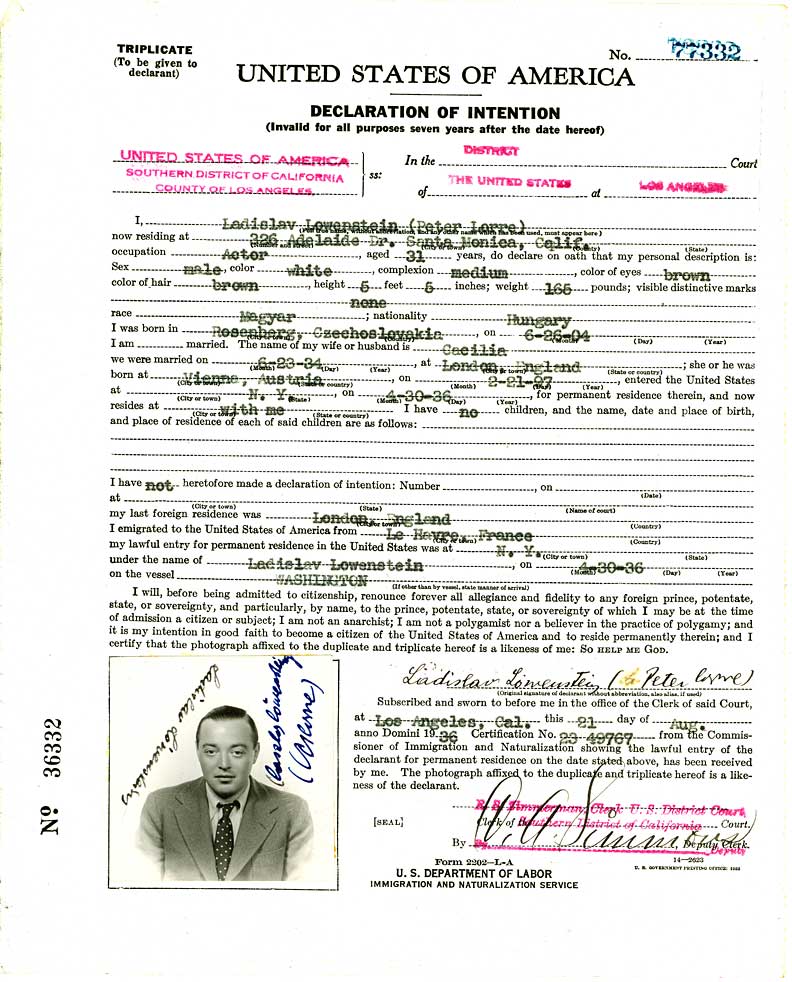 TRIPLICATE
(To be given to
declarant)
No. 77332
UNITED STATES OF AMERICA
DECLARATION OF INTENTION
(Invalid for all purposes seven years after the date hereof)
UNITED STATES OF AMERICA
SOUTHERN DISTRICT OF CALIFORNIA
COUNTY OF LOS ANGELES
ss:
In the DISTRICT Court
of THE UNITED STATES at LOS ANGELES
I, Ladislav Lowenstein (Peter Lorre)
(Full true name, without abbreviation, and any other name which has been used, must appear here)
now residing at 326 Adelaide Dr. Santa Monica, Calif.
(Number and street) (City or town) (County) (State)
occupation Actor, aged 31 years, do declare on oath that my personal description is:
Sex male, color white, complexion medium, color of eyes brown
color of hair brown, height 5 feet 5 inches; weight 165 pounds; visible distinctive marks
none
race Magyar; nationality Hungary
I was born in Rosenberg, Czechoslovakia, on 6-26-04
(City or town) (Country) (Month) (Day) (Year)
I am married. The name of my wife or husband is Caecilia
we were married on 6-23-34, at London, England; she or he was
(Month) (Day) (Year) (City or town) (State or country)
born at Vienna, Austria, on 2-21-97, entered the United States
(City or town) (State or country) (Month) (Day) (Year)
at N. Y., on 4-30-36, for permanent residence therein, and now
(City or town) (State) (Month) (Day) (Year)
resides at with me I have no children, and the name, date and place of birth,
(City or town) (State or country)
and place of residence of each of said children are as follows:
I have not heretofore made a declaration of intention: Number, on
(Date)
at
(City or town) (State) (Name of court)
my last foreign residence was London, England
(City or town) (Country)
I emigrated to the United States of America from Le Havre, France
(City or town) (Country)
my lawful entry for permanent residence in the United States was at N. Y.
(City or town) (State)
under the name of Ladislav Lowenstein, on 4-30-36
(Month) (Day) (Year)
on the vessel WASHINGTON
(If other than by vessel, state manner of arrival)
I will, before being admitted to citizenship, renounce forever all allegiance and fidelity to any foreign prince, potentate,
state, or sovereignty, and particularly, by name, to the prince, potentate, state, or sovereignty of which I may be at the time
of admission a citizen or subject; I am not an anarchist; I am not a polygamist nor a believer in the practice of polygamy; and
it is my intention in good faith to become a citizen of the United States of America and to reside permanently therein; and I
certify that the photograph affixed to the duplicate and triplicate hereof is a likeness of me: SO HELP ME GOD.
Ladislav Löwenstein
Ladislav Löwenstein
(P. Lorre)
Ladislav Löwenstein (Peter Lorre)
(Original signature of declarant without abbreviation, also alias, if used)
Subscribed and sworn to before me in the office of the Clerk of said Court,
at Los Angeles, Cal. this 21 day of Aug.
anno Domini 1936 Certification No. 23 49767 from the Commis-
sioner of Immigration and Naturalization showing the lawful entry of the
declarant for permanent residence on the date stated above, has been received
by me. The photograph affixed to the duplicate and triplicate hereof is a like-
ness of the declarant.
R. S. Zimmerman, Clerk U. S. District Court,
[SEAL]
Clerk of Southern District of California Court.
By Deputy Clerk.
Deputy
Form 2202-L-A
U. S. DEPARTMENT OF LABOR
IMMIGRATION AND NATURALIZATION SERVICE
14—2623
U. S. GOVERNMENT PRINTING OFFICE:
No 36332